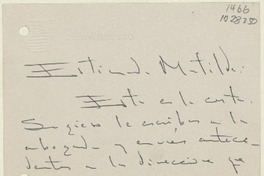 1466
1028350
Estimada Matilde:
Esta es la carta.
Sugiero le escribas a la
abogada y envíes antece-
dentes a la dirección que